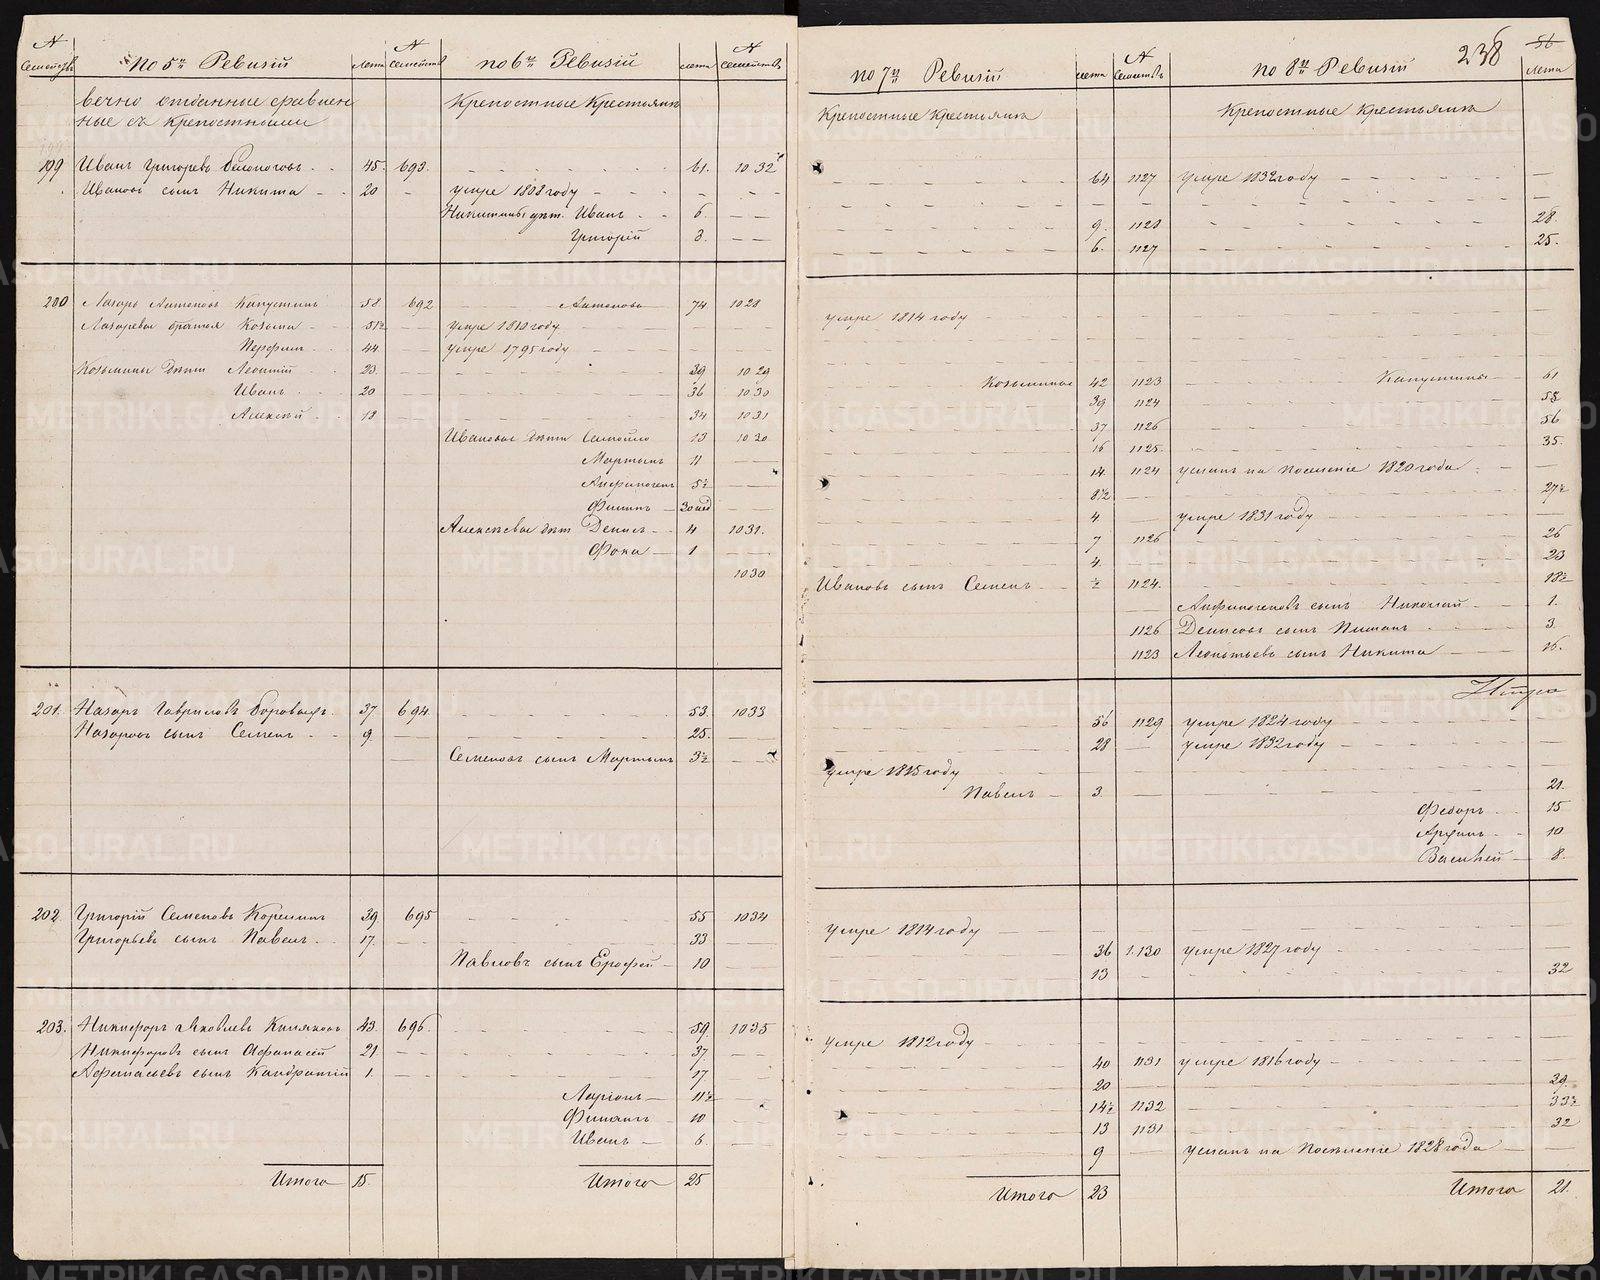 № Семейств по 5й Ревизіи лета № семейств по 6й Ревизіи лета № семейств
вечно отданные сравнен Крепостные Крестьяна
ные съ крепостными
199 Иванъ Григорьевъ Белоноговъ 45. 693. 61. 1032
Ивановъ сынъ Никита 20 умре 1808 году
Никитины дѣти Иванъ 6.
Григорій 3.
200 Лазарь Антоновъ Капустинъ 58. 692 Антоновъ 74 1028
Лазаревы братья Козьма 51½ умре 1810 году
Перфилъ 44. умре 1795 году
Козьмины дѣти Леонтій 23. 39 1029
Иванъ 20 36 1030
Алексѣй 18 34 1031
Ивановы дѣти Самойло 13 1030
Мартынъ 11
Анфиногенъ 5½
Филипъ 30 нед
Алексѣевы дѣти Денисъ 4 1031.
Фока 1
1030
201. Назаръ Гавриловъ Боровыхъ 37 694. 53. 1033
Назаровъ сынъ Семенъ 9. 25.
Семеновъ сынъ Мартынъ 3½
202 Григорій Семеновъ Корелинъ 39 695 55 1034
Григорьевъ сынъ Павелъ 17. 33
Павловъ сынъ Ерофей 10
203. Никифоръ Яковлевъ Киляковъ 43. 696. 59. 1035
Никифоровъ сынъ Афанасій 21. 37.
Афанасьевъ сынъ Кандратій 1. 17
Ларіонъ 11½
Филипъ 10
Иванъ 6.
Итого 15. Итого 25
238
56
по 7й Ревизіи лета № Семействъ по 8й Ревизіи лета
Крепостные Крестьяна Крепостные Крестьяна
64 1127 умре 1832 году
9. 1128 28.
6. 1127 25.
умре 1814 году
Козьмины 42 1123 Капустины 61
39 1124 58.
37 1126 56
16 1125. 35.
14 1124 усланъ на поселеніе 1820 года
8½ 27½
4 умре 1831 году
7 1126 26
4. 23
Ивановъ сынъ Семенъ ½ 1124. 18½
Анфиногеновъ сынъ Николай 1.
1126 Денисовъ сынъ Пиманъ 3.
1123 Леонтьевъ сынъ Никита 16.
56 1129 умре 1824 году
28 умре 1832 году
умре 1815 году
Павелъ 3. 21.
Федоръ 15
Архипъ 10
Василей 8.
умре 1814 году
36 1130 умре 1827 году
13 32
умре 1812 году
40 1131 умре 1816 году
20 39.
14½ 1132 33½
13 1131 32
9 усланъ на Поселеніе 1828 года
Итого 23 Итого 21.
METRIKI.GASO-URAL.RU